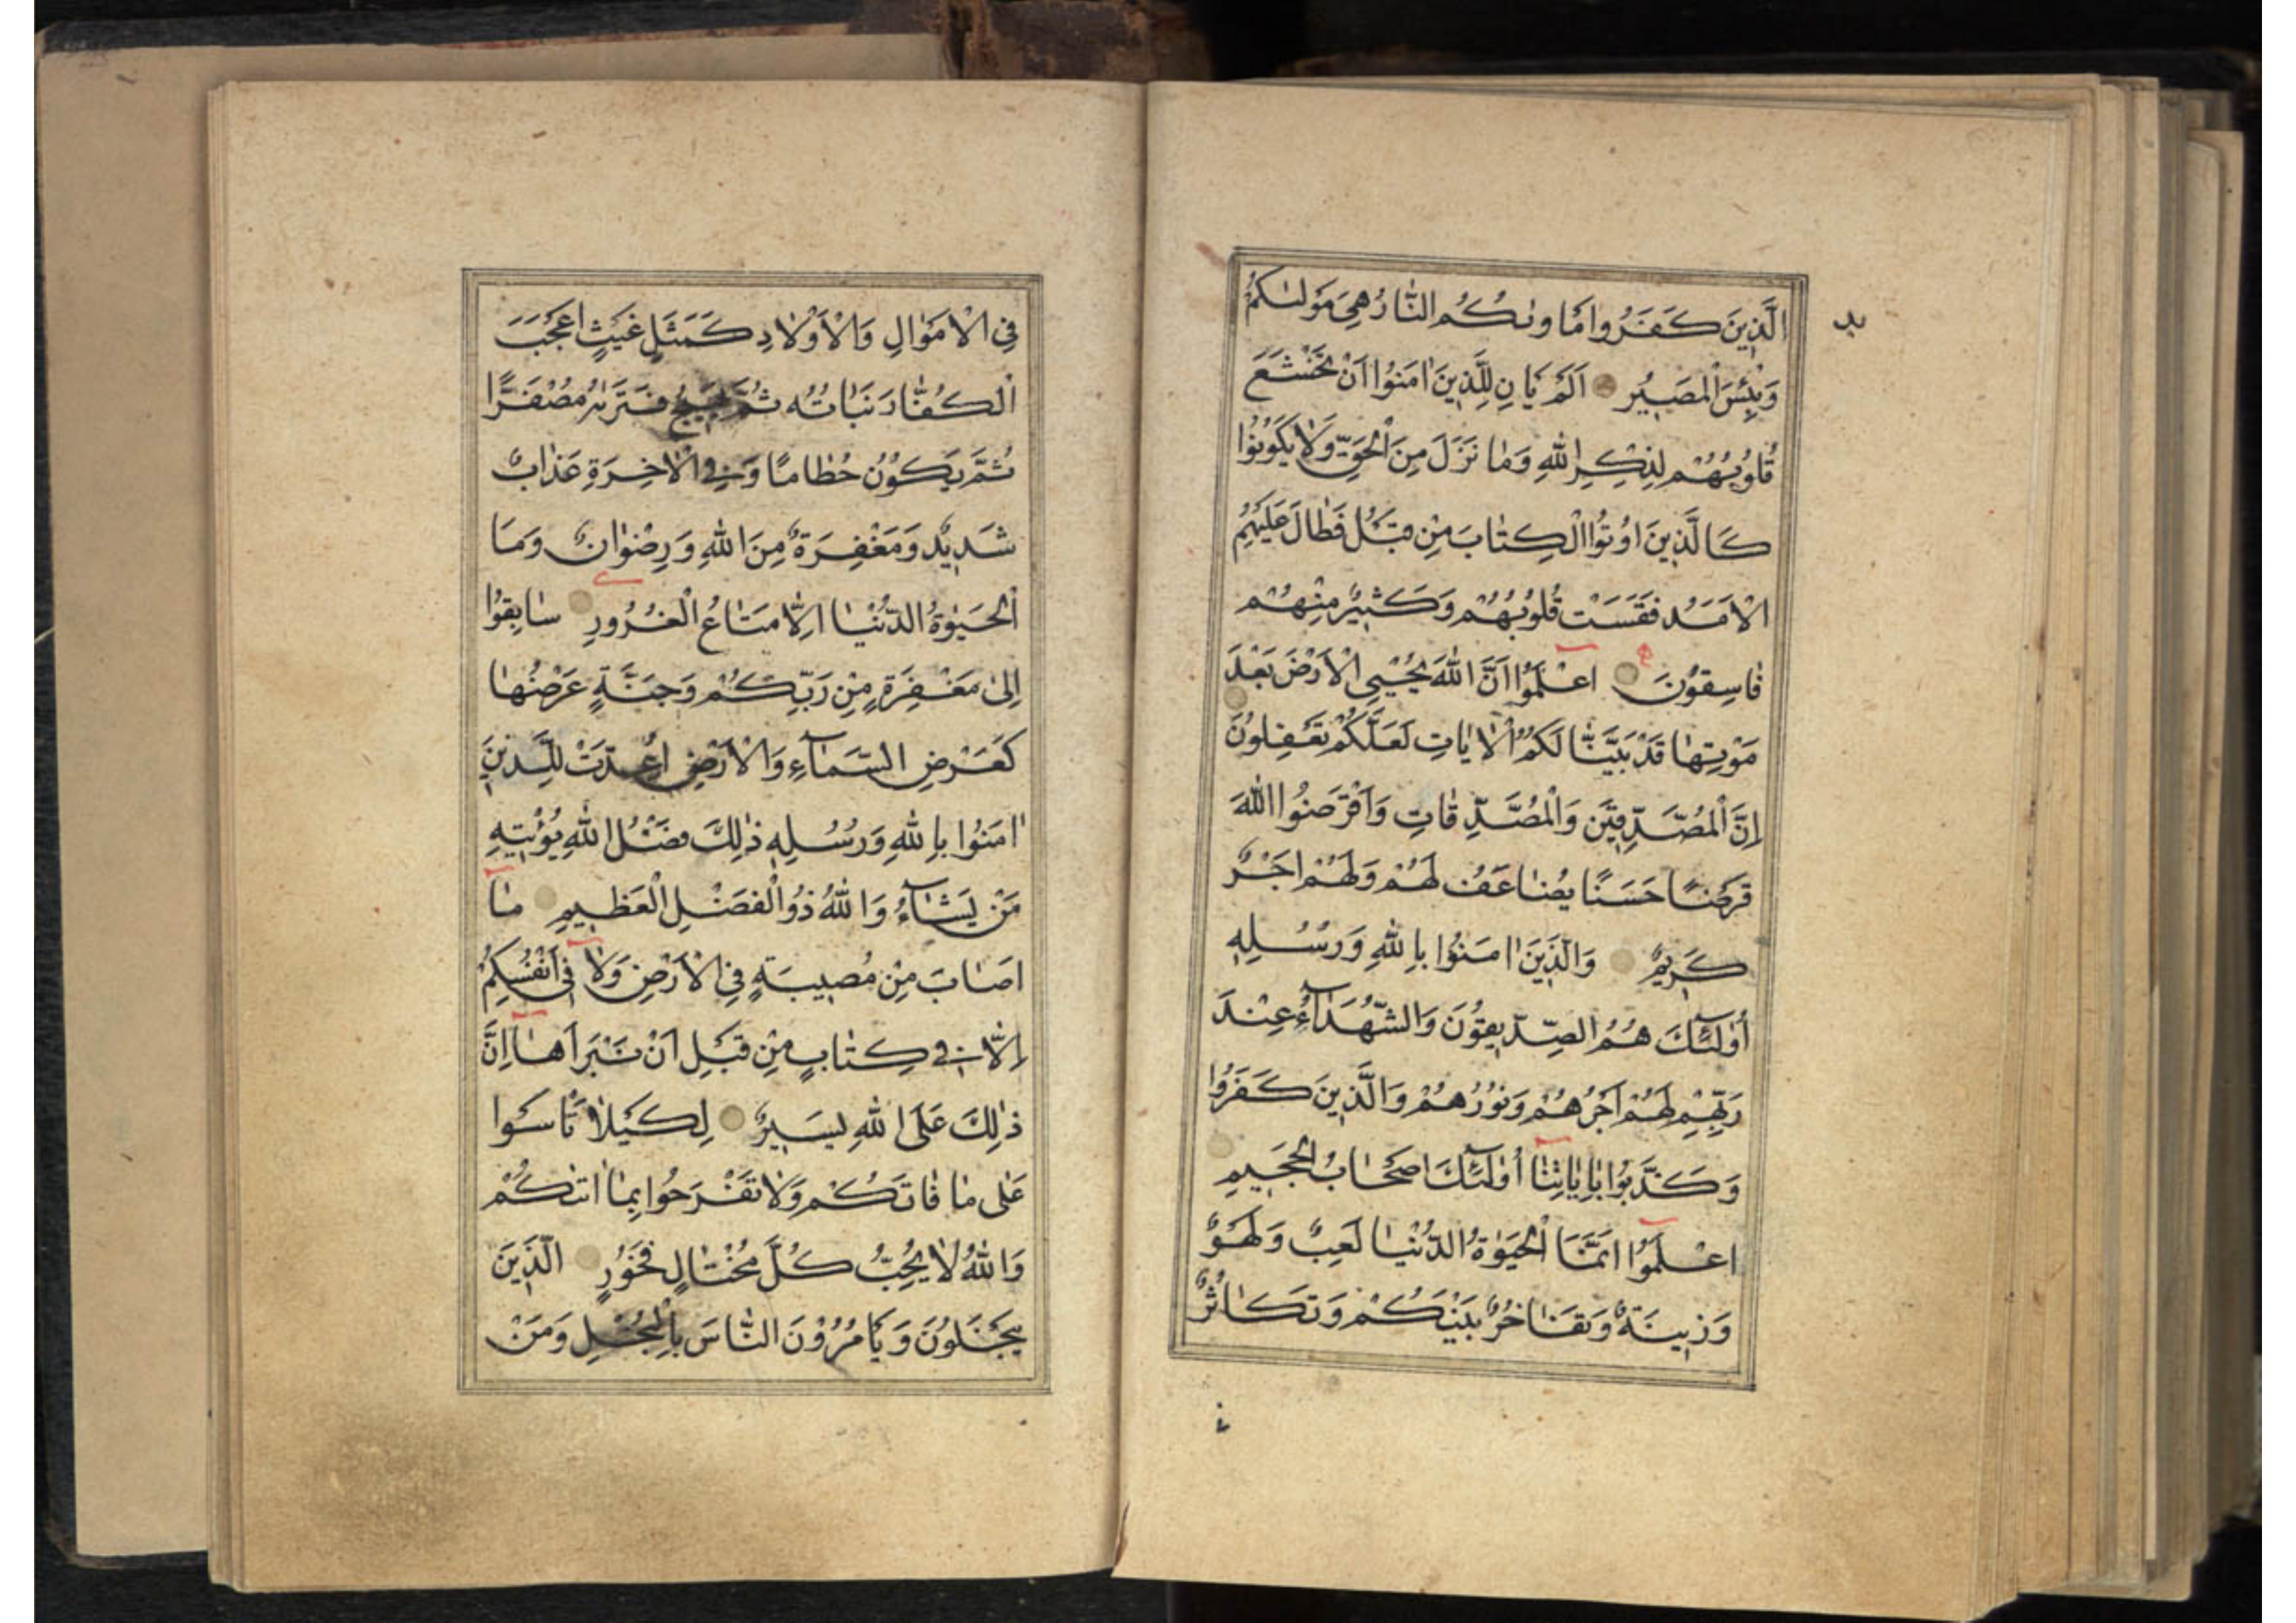 الَّذِينَ كَفَرُوا مَأْوٰىكُمُ النَّارُ هِيَ مَوْلٰىكُمْ
وَبِئْسَ الْمَصِيرُ اَلَمْ يَأْنِ لِلَّذِينَ اٰمَنُوا اَنْ تَخْشَعَ
قُلُوبُهُمْ لِذِكْرِ اللّٰهِ وَمَا نَزَلَ مِنَ الْحَقِّ وَلَا يَكُونُوا
كَالَّذِينَ اُوتُوا الْكِتَابَ مِنْ قَبْلُ فَطَالَ عَلَيْهِمُ
الْاَمَدُ فَقَسَتْ قُلُوبُهُمْ وَكَثِيرٌ مِنْهُمْ
فَاسِقُونَ اعْلَمُوا اَنَّ اللّٰهَ يُحْيِي الْاَرْضَ بَعْدَ
مَوْتِهَا قَدْ بَيَّنَّا لَكُمُ الْاٰيَاتِ لَعَلَّكُمْ تَعْقِلُونَ
اِنَّ الْمُصَّدِّقِينَ وَالْمُصَّدِّقَاتِ وَاَقْرَضُوا اللّٰهَ
قَرْضًا حَسَنًا يُضَاعَفُ لَهُمْ وَلَهُمْ اَجْرٌ
كَرِيمٌ وَالَّذِينَ اٰمَنُوا بِاللّٰهِ وَرُسُلِهِ
أُولٰئِكَ هُمُ الصِّدِّيقُونَ وَالشُّهَدَاءُ عِنْدَ
رَبِّهِمْ لَهُمْ اَجْرُهُمْ وَنُورُهُمْ وَالَّذِينَ كَفَرُوا
وَكَذَّبُوا بِاٰيَاتِنَا أُولٰئِكَ اَصْحَابُ الْجَحِيمِ
اعْلَمُوا اَنَّمَا الْحَيٰوةُ الدُّنْيَا لَعِبٌ وَلَهْوٌ
وَزِينَةٌ وَتَفَاخُرٌ بَيْنَكُمْ وَتَكَاثُرٌ
فِي الْاَمْوَالِ وَالْاَوْلَادِ كَمَثَلِ غَيْثٍ اَعْجَبَ
الْكُفَّارَ نَبَاتُهُ ثُمَّ يَهِيجُ فَتَرٰىهُ مُصْفَرًّا
ثُمَّ يَكُونُ حُطَامًا وَفِي الْاٰخِرَةِ عَذَابٌ
شَدِيدٌ وَمَغْفِرَةٌ مِنَ اللّٰهِ وَرِضْوَانٌ وَمَا
الْحَيٰوةُ الدُّنْيَا اِلَّا مَتَاعُ الْغُرُورِ سَابِقُوا
اِلٰى مَغْفِرَةٍ مِنْ رَبِّكُمْ وَجَنَّةٍ عَرْضُهَا
كَعَرْضِ السَّمَاءِ وَالْاَرْضِ اُعِدَّتْ لِلَّذِينَ
اٰمَنُوا بِاللّٰهِ وَرُسُلِهِ ذٰلِكَ فَضْلُ اللّٰهِ يُؤْتِيهِ
مَنْ يَشَاءُ وَاللّٰهُ ذُو الْفَضْلِ الْعَظِيمِ مَا
اَصَابَ مِنْ مُصِيبَةٍ فِي الْاَرْضِ وَلَا فِي اَنْفُسِكُمْ
اِلَّا فِي كِتَابٍ مِنْ قَبْلِ اَنْ نَبْرَاَهَا اِنَّ
ذٰلِكَ عَلَى اللّٰهِ يَسِيرٌ لِكَيْلَا تَأْسَوْا
عَلٰى مَا فَاتَكُمْ وَلَا تَفْرَحُوا بِمَا اٰتٰىكُمْ
وَاللّٰهُ لَا يُحِبُّ كُلَّ مُخْتَالٍ فَخُورٍ الَّذِينَ
يَبْخَلُونَ وَيَأْمُرُونَ النَّاسَ بِالْبُخْلِ وَمَنْ